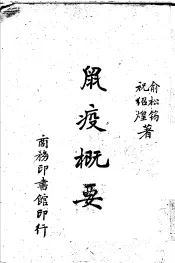 俞松筠
祝绍煌
著
鼠疫概要
商務印書館印行